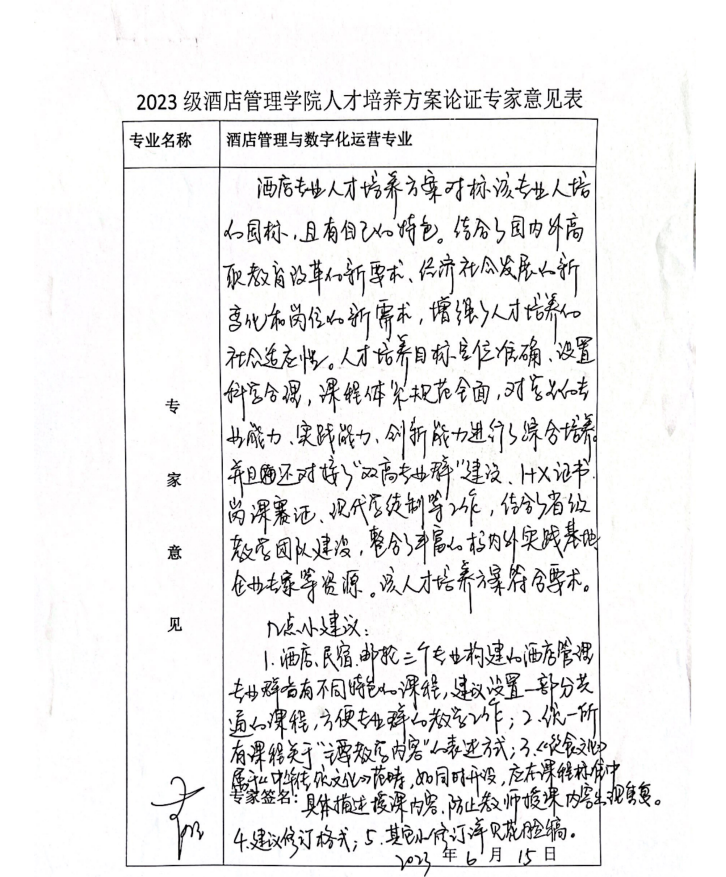 2023 级酒店管理学院人才培养方案论证专家意见表
专业名称 酒店管理与数字化运营专业
专家意见
酒店专业人才培养方案对标该专业人培
的国标，且有自己的特色。结合了国内外高
职教育改革的新要求、经济社会发展的新
变化和岗位的新需求，增强了人才培养的
社会适应性。人才培养目标定位准确、设置
科学合理，课程体系规范全面，对学生的专
业能力、实践能力、创新能力进行了综合培养。
并且还对接了“双高专业群”建设、1+X证书、
岗课赛证、现代学徒制等工作，结合了省级
教学团队建设，整合了丰富的校内外实践基地
企业专家等资源。该人才培养方案符合要求。
几点小建议：
1. 酒店、民宿、邮轮三个专业构建的酒店管理
专业群皆有不同特色的课程，建议设置一部分共
通的课程，方便专业群的教学工作；2. 统一所
有课程关于“主要教学内容”的表述方式；3.《饮食文化》
属于《中华传统文化》范畴，如同时开设，应在课程标准中
具体描述授课内容，防止教师授课内容出现重复。
专家签名：
4. 建议修订格式；5. 其它小修订详见花脸稿。
2023 年 6 月 15 日